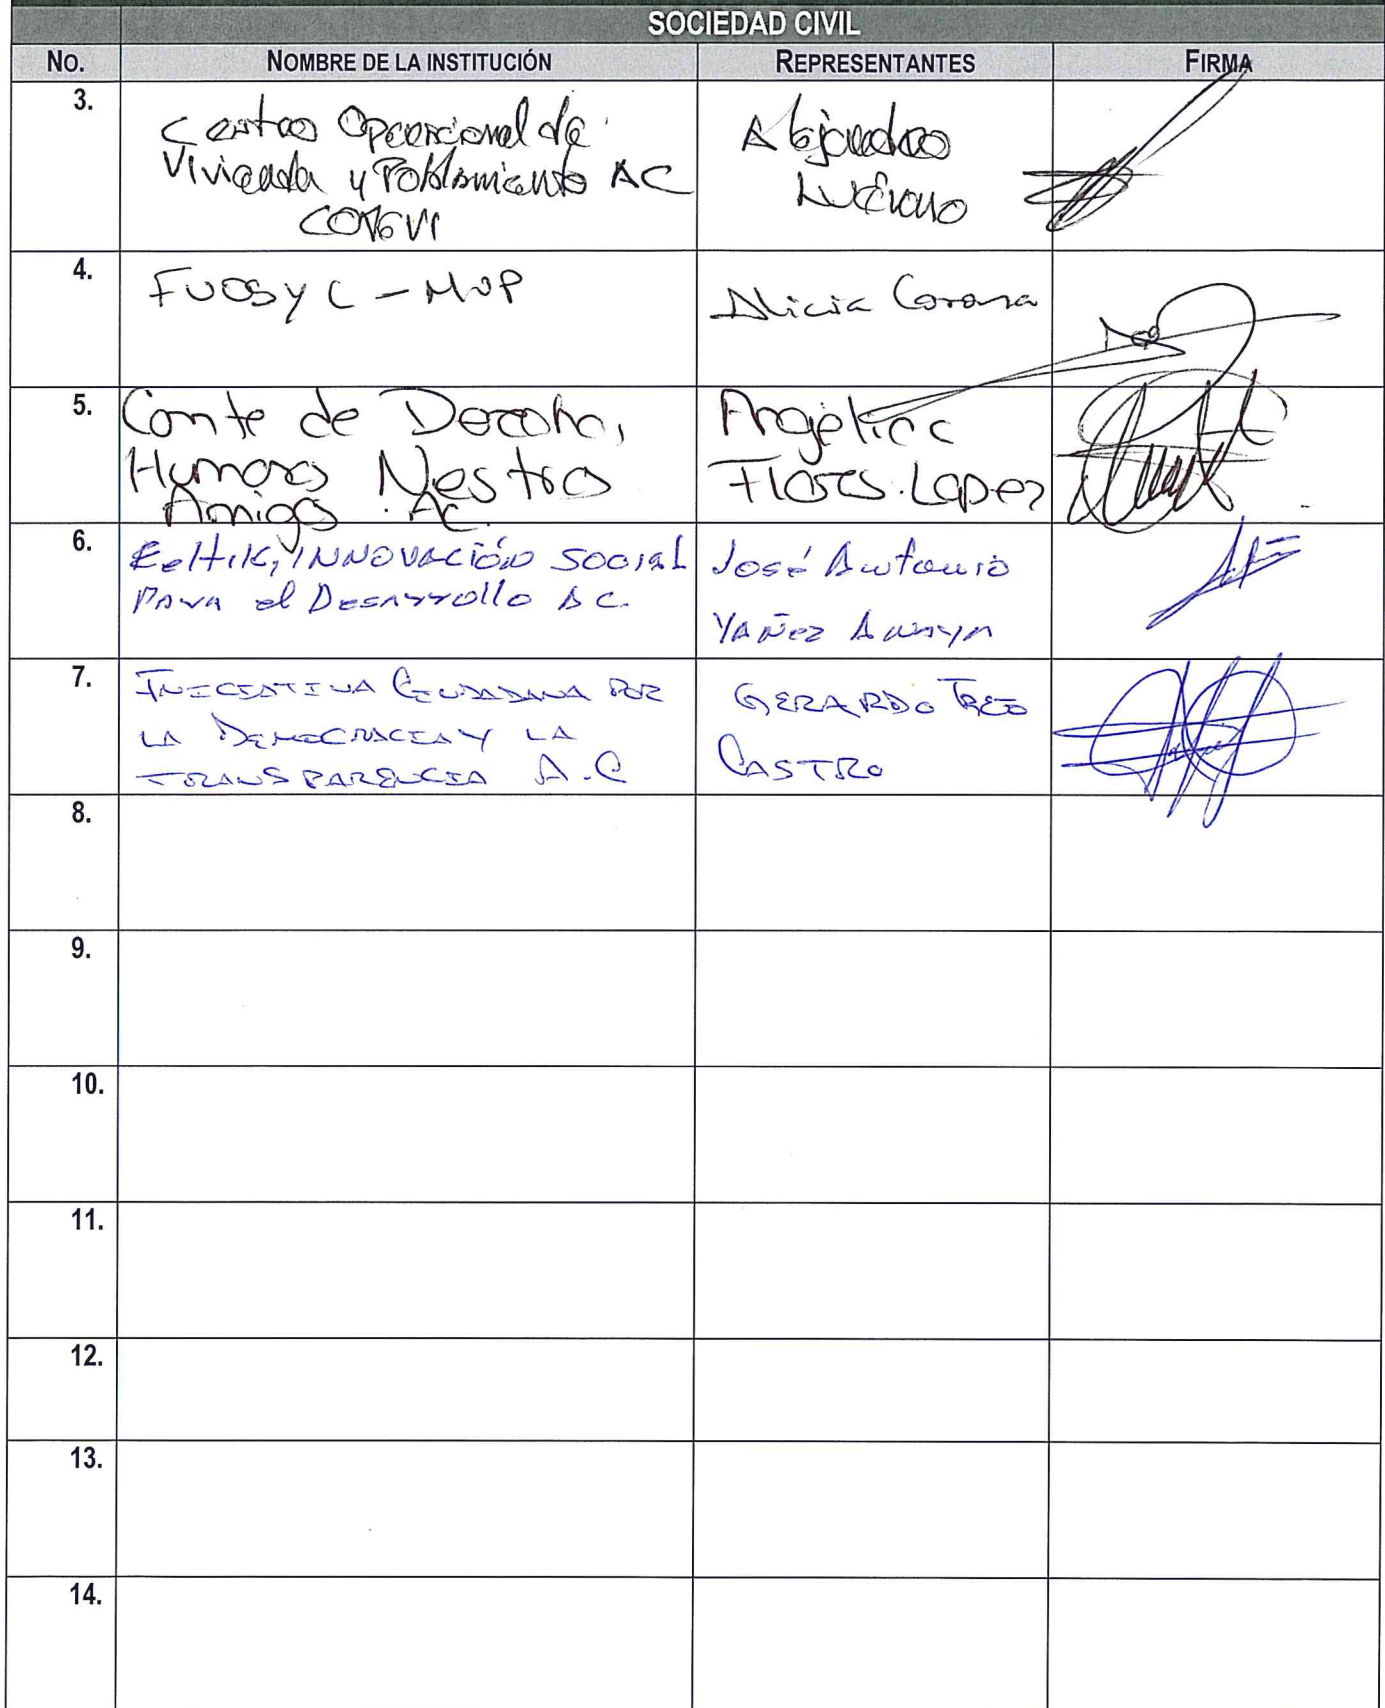 SOCIEDAD CIVIL
NO. NOMBRE DE LA INSTITUCIÓN REPRESENTANTES FIRMA
3.
Centro Operacional de
Vivienda y Poblamiento AC
COPEVI
Alejandro
Luévano
4.
FUOSyC - MUP
Alicia Corona
5.
Comte de Derecho,
Humanos Nestros
Amigos AC.
Angelica
Flores Lopez
6.
INNOVACIÓN SOCIAL
PARA el DESARROLLO A C.
José Antonio
YAÑEZ
7.
INICIATIVA CIUDADANA POR
LA DEMOCRACIA Y LA
TRANSPARENCIA A.C
GERARDO
CASTRO
8.
9.
10.
11.
12.
13.
14.